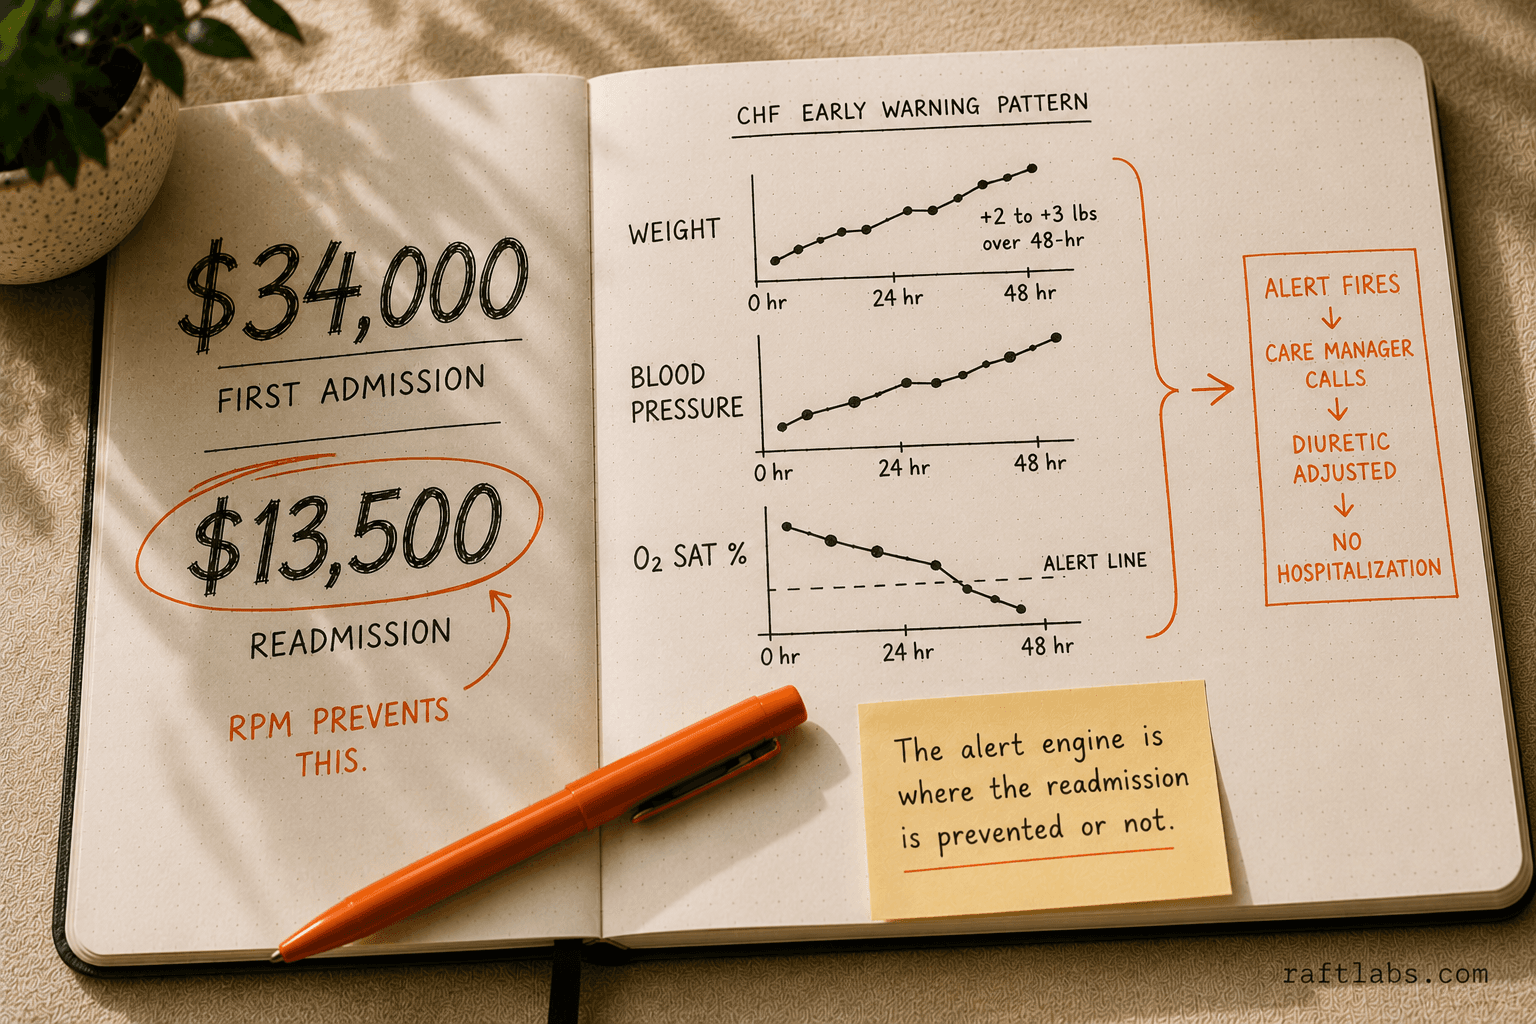 $34,000
FIRST ADMISSION
$13,500
READMISSION
RPM PREVENTS
THIS.
CHF EARLY WARNING PATTERN
WEIGHT
+2 to +3 lbs
over 48-hr
0 hr
24 hr
48 hr
BLOOD
PRESSURE
0 hr
24 hr
48 hr
O₂ SAT %
ALERT LINE
0 hr
24 hr
48 hr
ALERT FIRES
↓
CARE MANAGER
CALLS
↓
DIURETIC
ADJUSTED
↓
NO
HOSPITALIZATION
The alert engine is
where the readmission
is prevented or not.
raftlabs.com